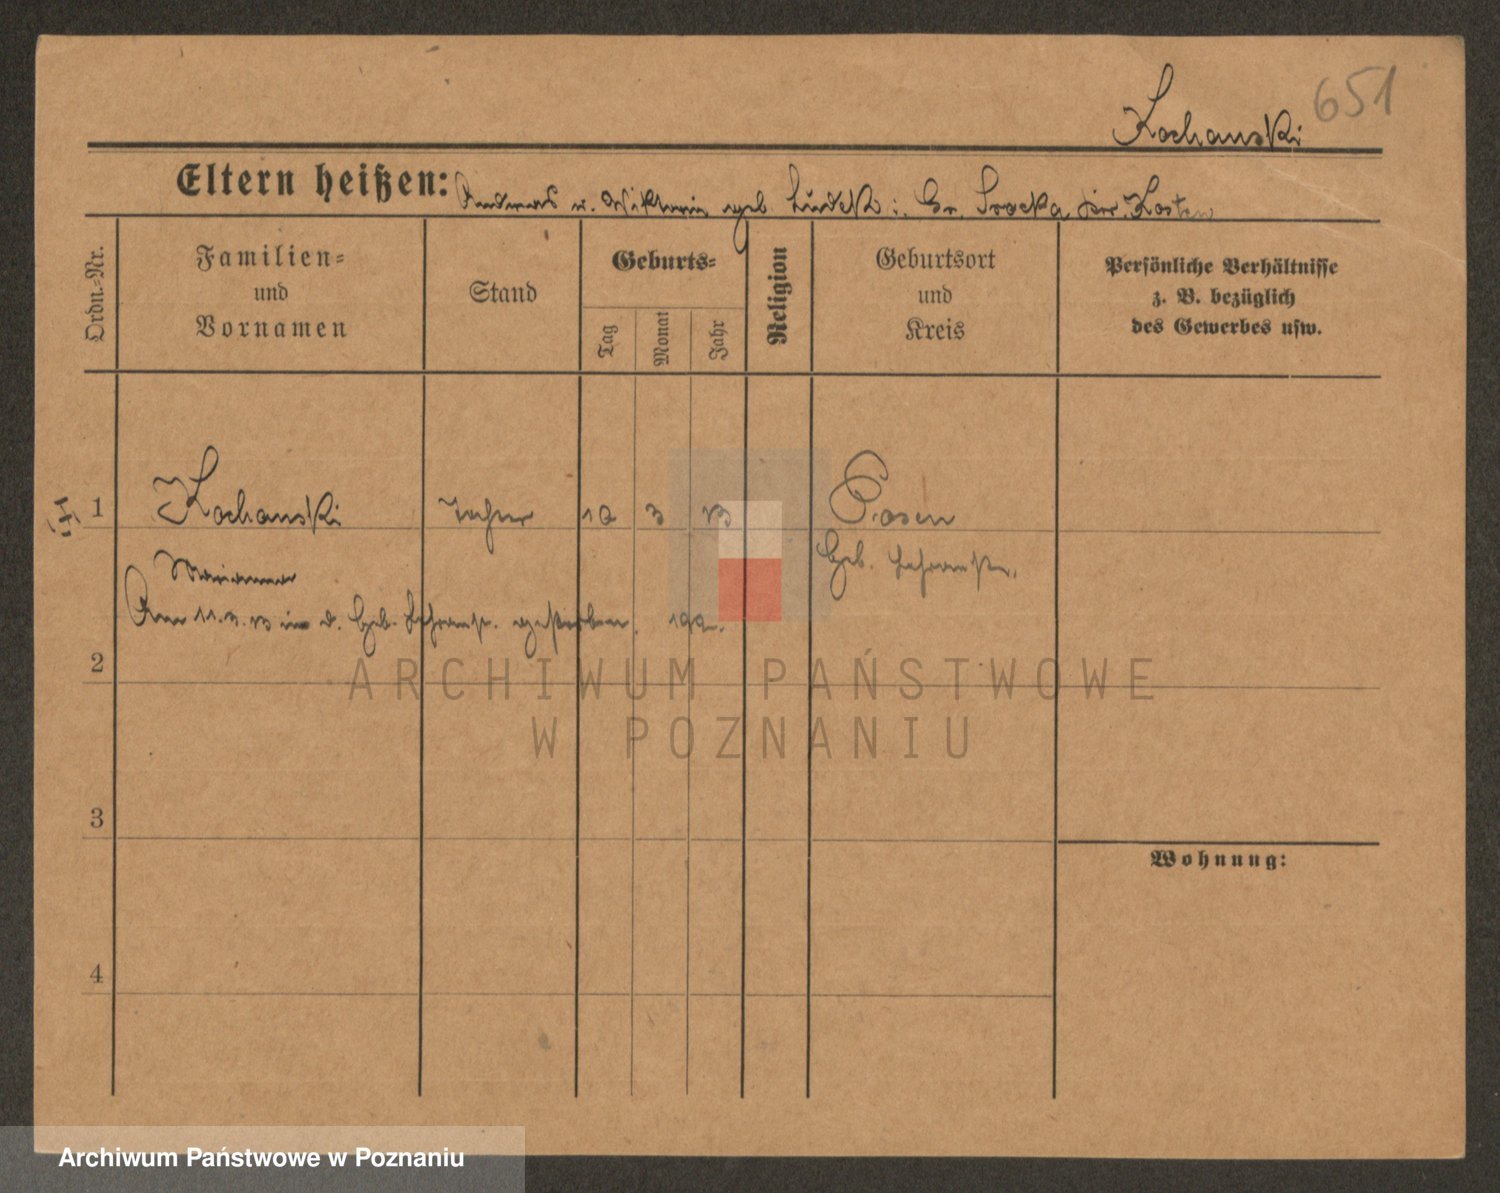 651
Kochanski
Eltern heißen: Andreas u. Wiktoria geb. : Gr. Srocka Kr. Kosten
Ordn.-Nr.
Familien-
und
Vornamen
Stand
Geburts-
Tag
Monat
Jahr
Religion
Geburtsort
und
Kreis
Persönliche Verhältnisse
z. B. bezüglich
des Gewerbes usw.
1 Kochanski Tochter 10 3 13 Posen
Marianna Geb. Lehranst.
Am 11.3.13 in d. Geb. Lehranst. gestorben.
2
3
4
Wohnung:
ARCHIWUM PAŃSTWOWE
W POZNANIU
Archiwum Państwowe w Poznaniu